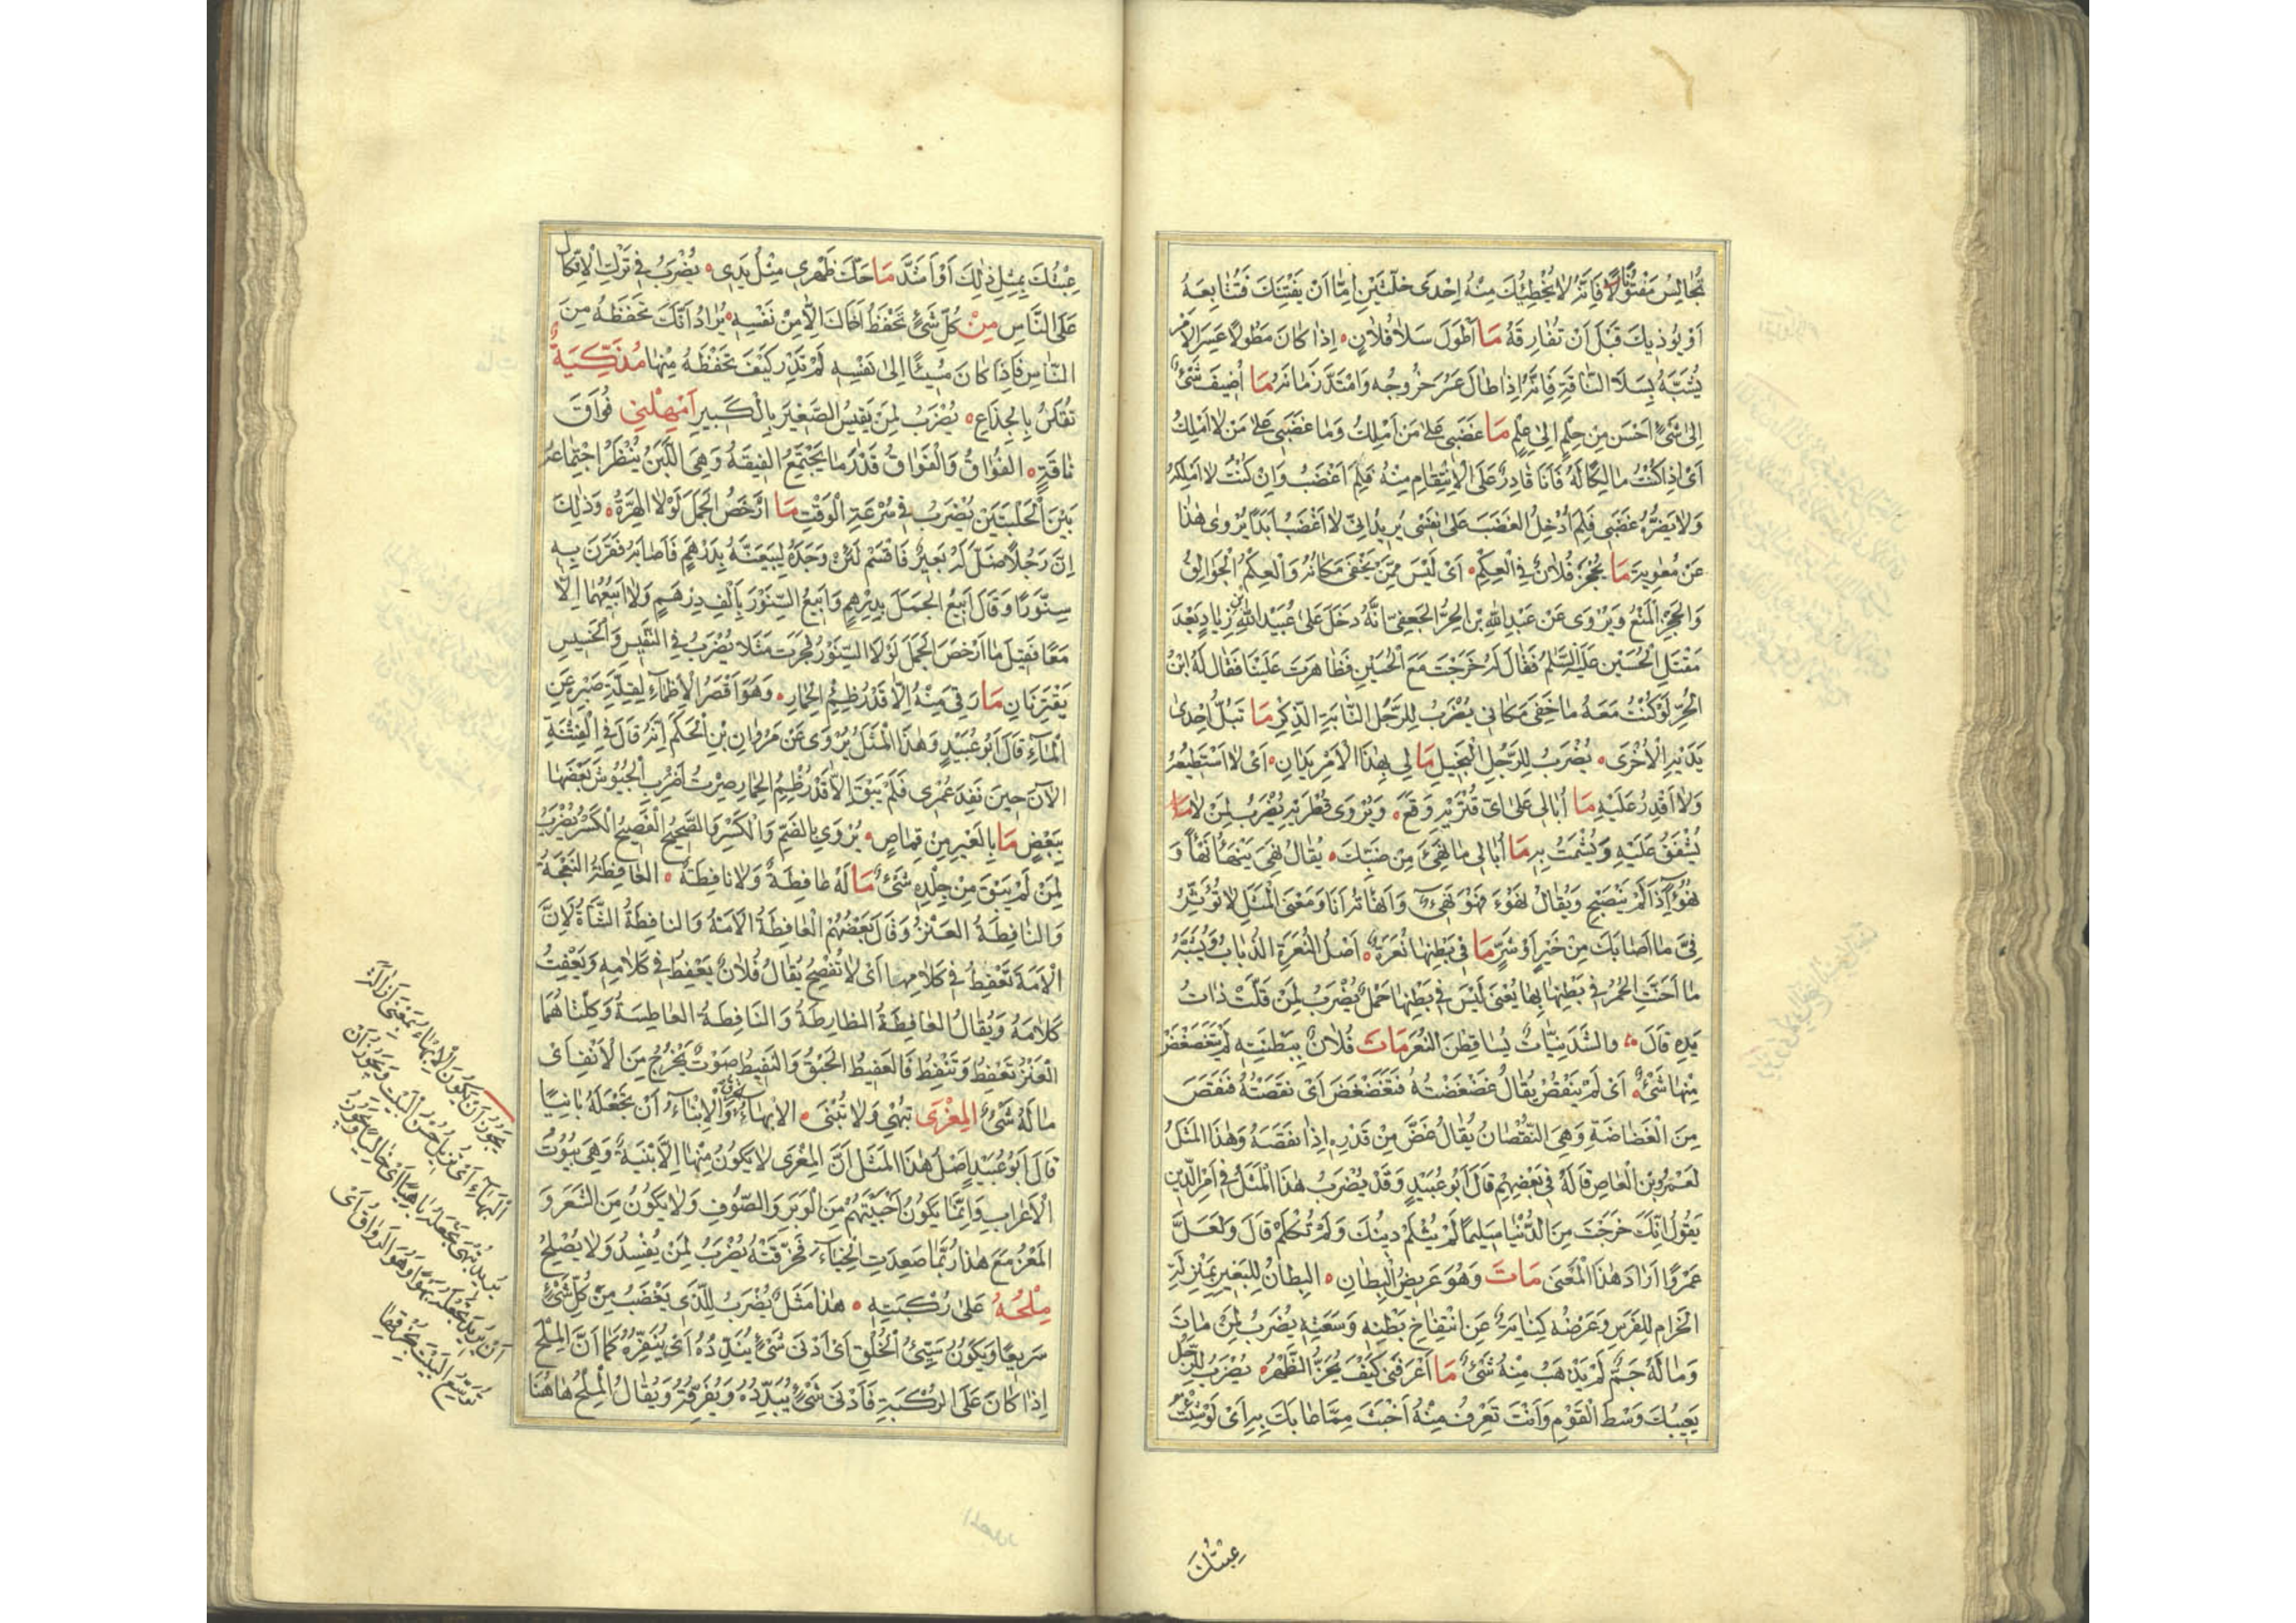 تُجَالِسْ مَفْتُونًا فَاِنَّهُ لَا يُخْطِئُكَ مِنْهُ اِحْدَى خَلَّتَيْنِ اِمَّا اَنْ يَفْتِنَكَ فَتُتَابِعَهُ
اَوْ يُؤذِيكَ قَبْلَ اَنْ تُفَارِقَهُ مَا اَطْوَلَ سَلَا فُلَانٍ اِذَا كَانَ مَطُولًا عَسِرَ الْاَمْرِ
يُشَبَّهُ بِسَلَا النَّاقَةِ فَاِنَّهُ اِذَا طَالَ عَسُرَ خُرُوجُه وَامْتَدَّ زَمَانُهُ مَا اُضِيفَ شَىْءٌ
اِلَى شَىْءٍ اَحْسَن مِن حِلْمٍ اِلَى عِلْمٍ مَا غَضَبِى عَلَى مَنْ اَمْلِكُ وَمَا غَضَبِى عَلَى مَنْ لَا اَمْلِكُ
اَىْ اِذَا كُنْتُ مَالِكًا لَهُ فَاَنَا قَادِرٌ عَلَى الْاِنْتِقَامِ مِنْهُ فَلِمَ اَغْضَبُ وَاِنْ كُنْتُ لَا اَمْلِكُهُ
وَلَا يَضُرُّهُ غَضَبِى فَلِمَ اُدْخِلُ الغَضَبَ عَلَى نَفْسِى يُرِيدُ اِنِّى لَا اَغْضَبُ اَبَدًا يُرْوَى هٰذَا
عَنْ مُعٰوِيةَ مَا يُحْجَزُ فُلَانٌ فِى الْعِكْمِ اَىْ لَيْسَ مِمَّنْ يَخْفَى مَكَانُهُ وَالْعِكْمُ الْجُوَالِقُ
وَالْحَجْزُ الْمَنْعُ وَيُرْوَى عَنْ عَبْدِ اللهِ بن الْحُرِّ الجُعفِىّ اَنَّهُ دَخَلَ عَلَى عُبَيْدِ اللهِ بن زِيَادٍ بَعْدَ
مَقْتَلِ الْحُسَيْن عَلَيْهِ السَّلَمُ فَقَالَ لَهُ خَرَجْتَ مَعَ الْحُسَيْنِ فَظَاهَرْتَ عَلَيْنَا فَقَالَ لَهُ ابْنُ
الْحُرِّ لَوْ كُنْتُ مَعَهُ مَا خَفِىَ مَكَانِى يُضْرَبُ لِلرَّجُلِ النَّابِهِ الذِّكْرِ مَا تَبُلُّ اِحْدَى
يَدَيْهِ الْاُخْرَى يُضْرَبُ لِلرَّجُلِ الْبَخِيلِ مَا لِى بِهٰذَا الْاَمْرِ يَدَانِ اَىْ لَا اَسْتَطِيعُهُ
وَلَا اَقْدِرُ عَلَيْهِ مَا اُبَالِى عَلَى اَىِّ قُتْرَيْهِ وَقَعَ وَيُرْوَى قُطْرَيْهِ يُضْرَبُ لِمَنْ لَا
يُشْفَقُ عَلَيْهِ وَيُشْمَتُ بِهِ مَا اُبَالِى مَا نَهِئَ مِنْ ضَبِّكَ يُقَالُ نَهِئَ يَنْهَأُ نَهْأً وَ
نُهُوْءً اِذَا لَمْ يَنْضَجْ وَيُقَالُ نَهُؤَ فَهُوَ نَهِىءٌ وَاَنْهَأْتُهُ اَنَا وَمَعْنَى الْمَثَلِ لَا تُؤَثِّرُ
فِىَّ مَا اَصَابَكَ مِنْ خَيْرٍ اَوْ شَرٍّ مَا فِى بَطْنِهَا نُعَرَةٌ اَصْلُ النُّعَرَةِ الذُّبَابُ وَيُشَبَّهُ
مَا اَجَنَّتِ الْحُمُرُ فِى بَطْنِهَا بِهَا يُعْنَى لَيْسَ فِى بَطْنِهَا حَمْلٌ يُضْرَبُ لِمَنْ قَلَّتْ ذَاتُ
يَدِهِ قَالَ وَالشَّدَنِيَّاتُ يُسَاقِطْنَ النُّعَرَ مَاتَ فُلَانٌ بِبِطْنَتِهِ لَمْ يَتَغَضْغَضْ
مِنْهَا شَىْءٌ اَىْ لَمْ يَنْقُصْ يُقَالُ غَضْغَضْتُهُ فَتَغَضْغَضَ اَىْ نَقَصْتُهُ فَنَقَصَ
مِنَ الْغَضَاضَةِ وَهِىَ النُّقْصَانُ يُقَالُ غَضَّ مِنْ قَدْرِهِ اِذَا نَقَصَهُ وَهٰذَا الْمَثَلُ
لِعَمْرِو بْنِ الْعَاصِ قَالَهُ فِى بَعْضِهِمْ قَالَ اَبُو عُبَيْدٍ وَقَدْ يُضْرَبُ هٰذَا الْمَثَلُ فِى اَمْرِ الدِّينِ
يَقُولُ اِنَّكَ خَرَجْتَ مِنَ الدُّنْيَا سَلِيمًا لَمْ يُثْلَمْ دِينُكَ وَلَمْ تُكْلَمْ قَالَ وَلَعَلَّ
عَمْرًوا اَرَادَ هٰذَا الْمَعْنَى مَاتَ وَهُوَ عَرِيضُ الْبِطَانِ الْبِطَانُ لِلْبَعِيرِ بِمَنْزِلَةِ
الْحِزَامِ لِلْفَرَسِ وَعَرْضُهُ كِنَايَةٌ عَنِ انْتِفَاخِ بَطْنِهِ وَسَعَتِهِ يُضْرَبُ لِمَنْ مَاتَ
وَمَالُهُ جَمٌّ لَمْ يَذْهَبْ مِنْهُ شَىْءٌ مَا اَعْرَفَنِى كَيْفَ يُجَزُّ الظَّهْرُ يُضْرَبُ لِلرَّجُلِ
يَعِيبُكَ وَسْطَ الْقَوْمِ وَاَنْتَ تَعْرِفُ مِنْهُ اَخْبَثَ مِمَّا عَابَكَ بِهِ اَىْ لَوْ شِئْتُ
عِبْتُكَ
عِبْتُكَ بِمِثْلِ ذٰلِكَ اَوْ اَشَدَّ مَا حَكَّ ظَهْرِى مِثْلُ يَدِى يُضْرَبُ فِى تَرْكِ الْاِتِّكَالِ
عَلَى النَّاسِ مِنْ كُلِّ شَىْءٍ تَحْفَظُ اَخَاكَ اِلَّا مِنْ نَفْسِهِ يُرَادُ اَنَّكَ تَحْفَظُهُ مِنَ
النَّاسِ فَاِذَا كَانَ مُسِيئًا اِلَى نَفْسِهِ لَمْ تَدْرِ كَيْفَ تَحْفَظُهُ مِنْهَا مُذَكِّيَةٌ
تُقَاسُ بِالْجِذَاعِ يُضْرَبُ لِمَنْ يَقِيسُ الصَّغِيرَ بِالْكَبِيرِ اَمْهِلْنِى فُوَاقَ
نَاقَةٍ الْفُوَاقُ وَالْفَوَاقُ قَدْرُ مَا يَجْتَمِعُ الْفِيقَةُ وَهِىَ اللَّبَنُ يُنْتَظَرُ اجْتِمَاعُهُ
بَيْنَ الْحَلْبَتَيْنِ يُضْرَبُ فِى سُرْعَةِ الْوَقْتِ مَا اَرْخَصُ الْجَمَلَ لَوْلَا الْهِرَّةُ وَذٰلِكَ
اِنَّ رَجُلًا ضَلَّ لَهُ بَعِيرٌ فَاَقْسَمَ لَئِنْ وَجَدَهُ لَيَبِيعَنَّهُ بِدِرْهَمٍ فَاَصَابَهُ فَقَرَنَ بِهِ
سِنَّوْرًا وَقَالَ اَبِيعُ الْجَمَلَ بِدِرْهَمٍ وَاَبِيعُ السِّنَّوْرَ بِاَلْفِ دِرْهَمٍ وَلَا اَبِيعُهُمَا اِلَّا
مَعًا فَقِيلَ مَا اَرْخَصَ الْجَمَلَ لَوْلَا السِّنَّوْرُ فَجَرَتْ مَثَلًا يُضْرَبُ فِى النَّفِيسِ وَالْخَسِيسِ
يَقْتَرِنَانِ مَا بَقِىَ مِنْهُ اِلَّا قَدْرُ ظِمْءِ الْحِمَارِ وَهُوَ اَقْصَرُ الْاَظْمَاءِ لِقِلَّةِ صَبْرِهِ عَنِ
الْمَاءِ قَالَ اَبُو عُبَيْدٍ وَهٰذَا الْمَثَلُ يُرْوَى عَنْ مَرْوَانَ بْنِ الْحَكَمِ اَنَّهُ قَالَ فِى الْفِتْنَةِ
الْآنَ حِينَ نَفِدَ عُمْرِى فَلَمْ يَبْقَ اِلَّا قَدْرُ ظِمْءِ الْحِمَارِ صِرْتُ اَضْرِبُ الْجُيُوشَ بَعْضَهَا
بِبَعْضٍ مَا بِالْعَيْرِ مِنْ قِمَاصٍ يُرْوَى بِالضَّمِّ وَالْكَسْرِ وَالصَّحِيحُ الْفَصِيحُ الْكَسْرُ يُضْرَبُ
لِمَنْ لَمْ يَبْقَ مِنْ جِلْدِهِ شَىْءٌ مَا لَهُ عَافِطَةٌ وَلَا نَافِطَةٌ الْعَافِطَةُ النَّعْجَةُ
وَالنَّافِطَةُ الْعَنْزُ وَقَالَ بَعْضُهُمُ الْعَافِطَةُ الْاَمَةُ وَالنَّافِطَةُ الشَّاةُ لِاَنَّ
الْاَمَةَ تَعْفِطُ فِى كَلَامِهَا اَىْ لَا تُفْصِحُ يُقَالُ فُلَانٌ يَعْفِطُ فِى كَلَامِهِ وَيَعْفِتُ
كَلَامَهُ وَيُقَالُ الْعَافِطَةُ الضَّارِطَةُ وَالنَّافِطَةُ الْعَاطِسَةُ وَكِلْتَاهُمَا
الْعَنْزُ تَعْفِطُ وَتَنْفِطُ فَالْعَفِيطُ الْحَبْقُ وَالنَّفِيطُ صَوْتٌ يَخْرُجُ مِنَ الْاَنْفِ اَىْ
مَا لَهُ شَىْءٌ الْمِعْزَى تُبْهِى وَلَا تُبْنِى الْاِبْهَاءُ وَالْاِبْنَاءُ اَنْ تَجْعَلَهُ بَانِيًا
قَالَ اَبُو عُبَيْدٍ اَصْلُ هٰذَا الْمَثَلِ اَنَّ الْمِعْزَى لَا يَكُونُ مِنْهَا الْاَبْنِيَةُ وَهِىَ بُيُوتُ
الْاَعْرَابِ وَاِنَّمَا يَكُونُ اَخْبِيَتُهُمْ مِنَ الْوَبَرِ وَالصُّوفِ وَلَا يَكُونُ مِنَ الشَّعَرِ وَ
الْمَعْزُ مَعَ هٰذَا رُبَّمَا صَعِدَتِ الْخِبَاءَ فَخَرَّقَتْهُ يُضْرَبُ لِمَنْ يُفْسِدُ وَلَا يُصْلِحُ
مِلْحُهُ عَلَى رُكْبَتِهِ هٰذَا مَثَلٌ يُضْرَبُ لِلَّذِى يَغْضَبُ مِنْ كُلِّ شَىْءٍ
سَرِيعًا وَيَكُونُ سَيِّئَ الْخُلُقِ اَىْ اَدْنَى شَىْءٍ يُبَدِّدُهُ اَىْ يُنَفِّرُهُ كَمَا اَنَّ الْمِلْحَ
اِذَا كَانَ عَلَى الرُّكْبَةِ فَاَدْنَى شَىْءٍ يُبَدِّدُهُ وَيُفَرِّقُهُ وَيُقَالُ الْمِلْحُ هَاهُنَا
يَجُوزُ اَنْ يَكُونَ الْاِبْهَاءُ بِمَعْنَى اِزَالَةِ
الْبَهَاءِ اَىْ تُزِيلُ حُسْنَ الْبَيْتِ وَيَجُوزُ اَنْ
يُرِيدَ تُبْهِى تَجْعَلُهُ بَاهِيًا اَىْ خَالِيًا وَيَجُوزُ
اَنْ يُرِيدَ تَجْعَلُهُ بَهْوًا وَهُوَ الرِّوَاقُ اَىْ
تُوَسِّعُ الْبَيْتَ بِخَرْقِهَا